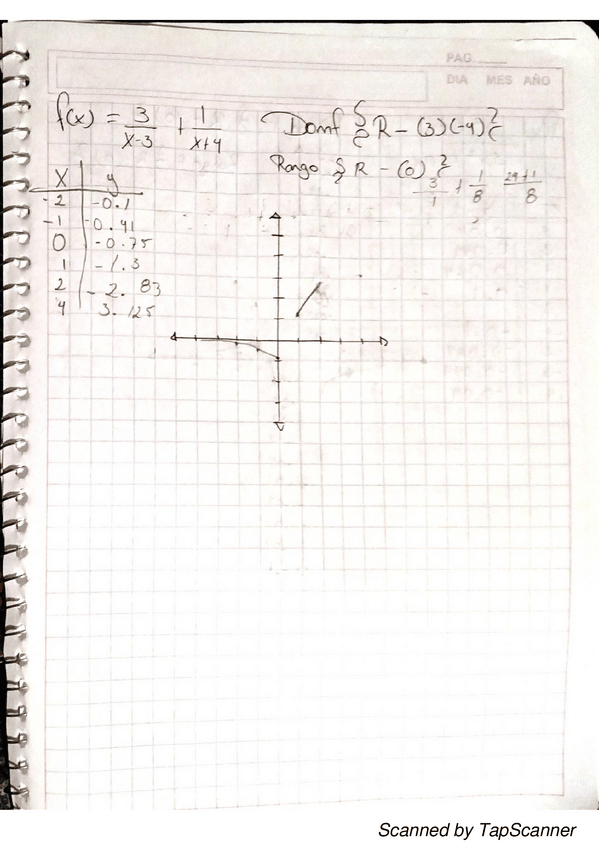 PAG.
DIA MES AÑO
f(x) = 3/(x-3) + 1/(x+4)
Domf {R - (3)(-4)}
Rango {R - (0)}
3/1 + 1/8 (24+1)/8
x y
-2 -0.1
-1 -0.41
0 -0.75
1 -1.3
2 -2.83
4 3.125
Scanned by TapScanner